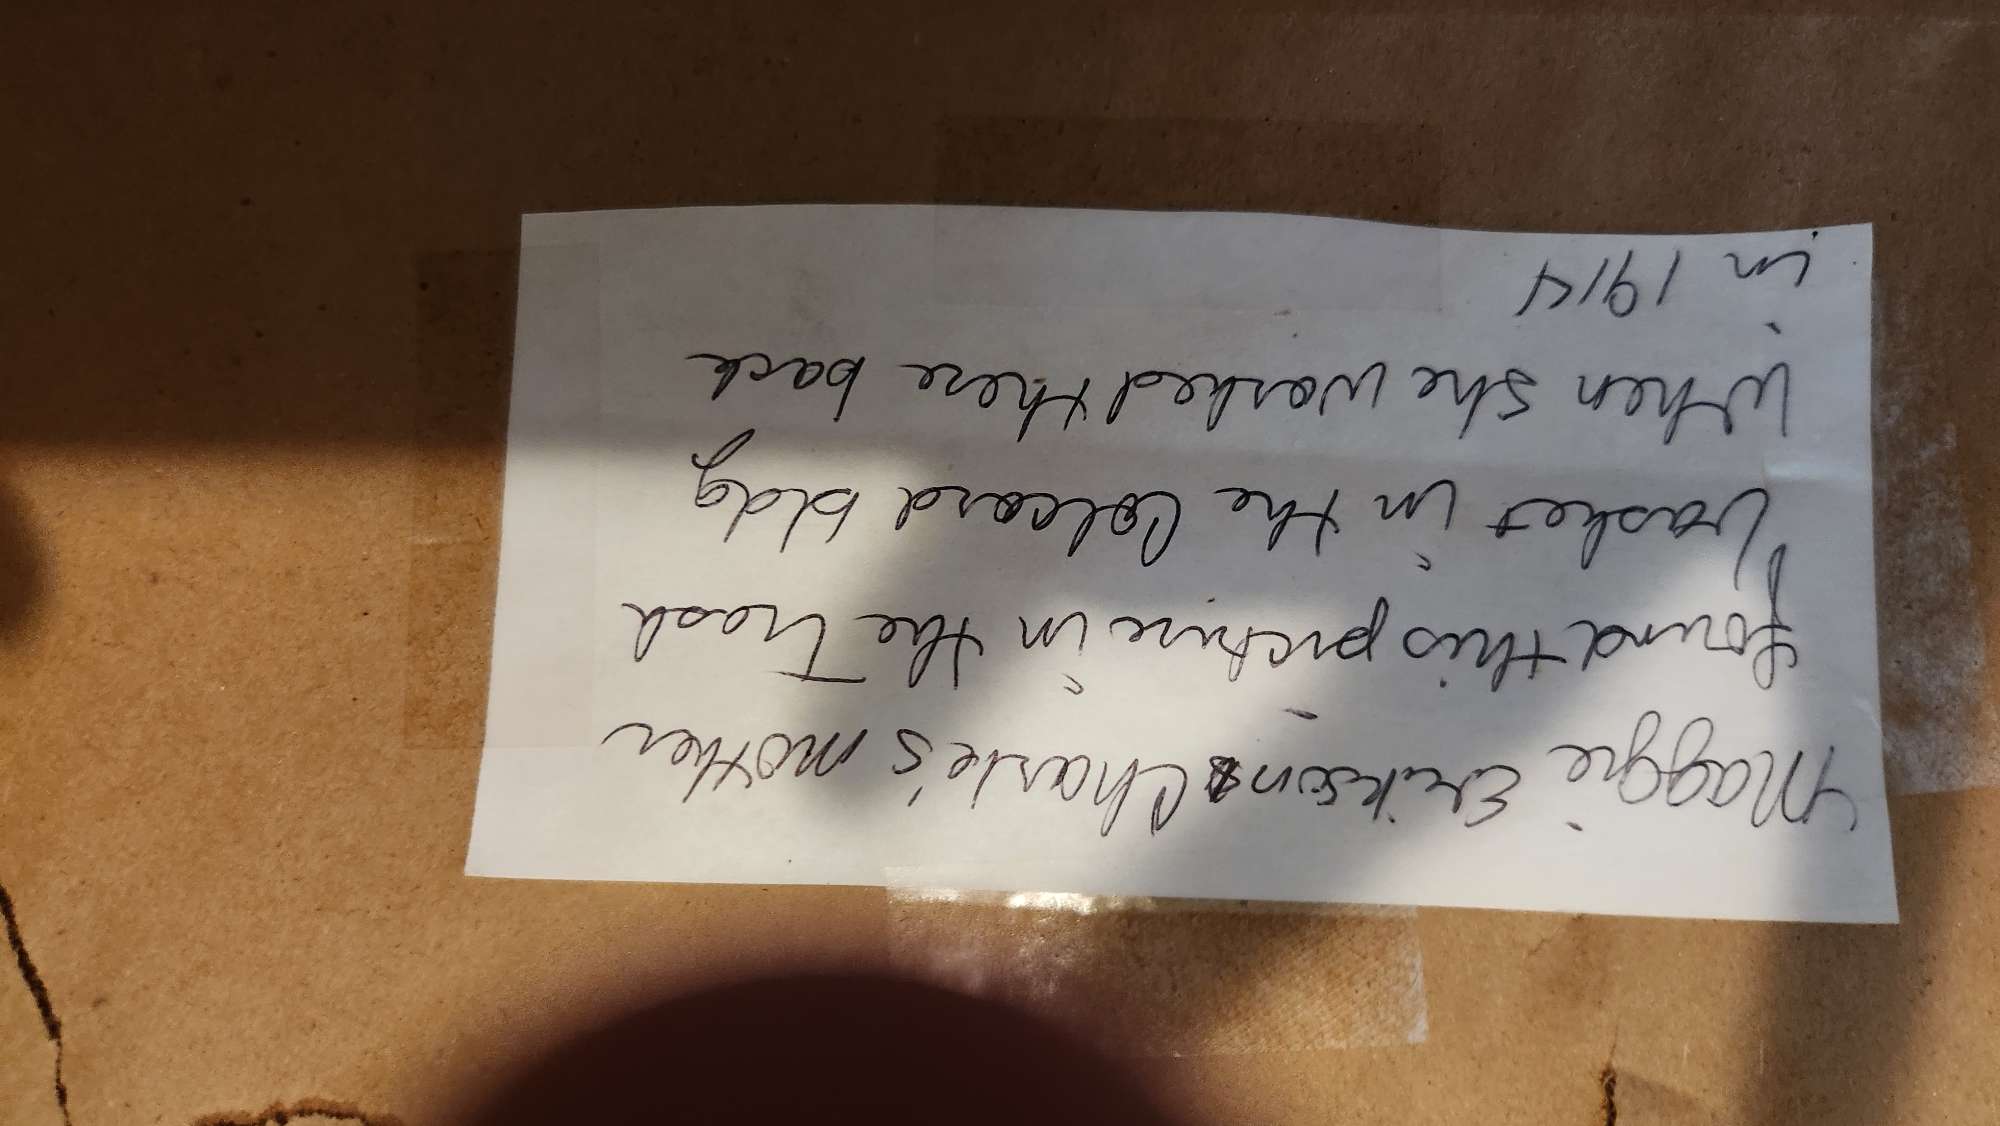 Maggie Erikson, Charle's mother
found this picture in the Trash
basket in the Colcord bldg
when she worked there back
in 1914